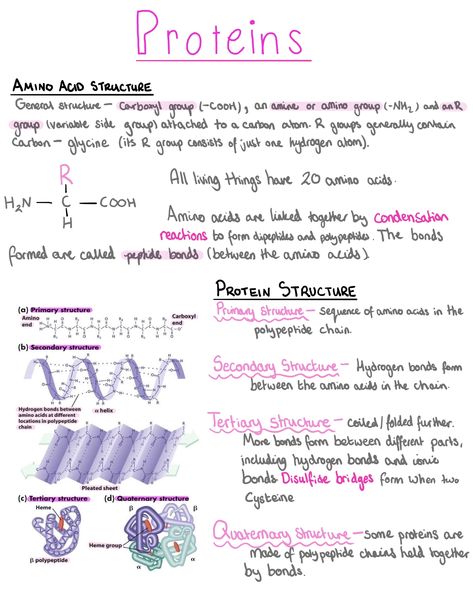 Proteins
AMINO ACID STRUCTURE
General structure - carboxyl group (-COOH), an amine or amino group (-NH2) and an R
group (variable side group) attached to a carbon atom. R groups generally contain
Carbon - glycine (its R group consists of just one hydrogen atom).
R
H2N - C - COOH
H
All living things have 20 amino acids.
Amino acids are linked together by condensation
reactions to form dipeptides and polypeptides. The bonds
formed are called peptide bonds (between the amino acids)
PROTEIN STRUCTURE
Primary structure - sequence of amino acids in the
polypeptide chain.
Secondary Structure - Hydrogen bonds form
between the amino acids in the chain.
Tertiary structure - coiled/folded further.
More bonds form between different parts,
including hydrogen bonds and ionic
bonds Disulfide bridges form when two
Cysteine
Quaternary Structure - some proteins are
made of polypeptide chains held together
by bonds.
(a) Primary structure
Amino
end
Carboxyl
end
(b) Secondary structure
Hydrogen bonds between
amino acids at different
locations in polypeptide
chain
α helix
Pleated sheet
(c) Tertiary structure
Heme
β polypeptide
(d) Quaternary structure
β
β
Heme group
α
α